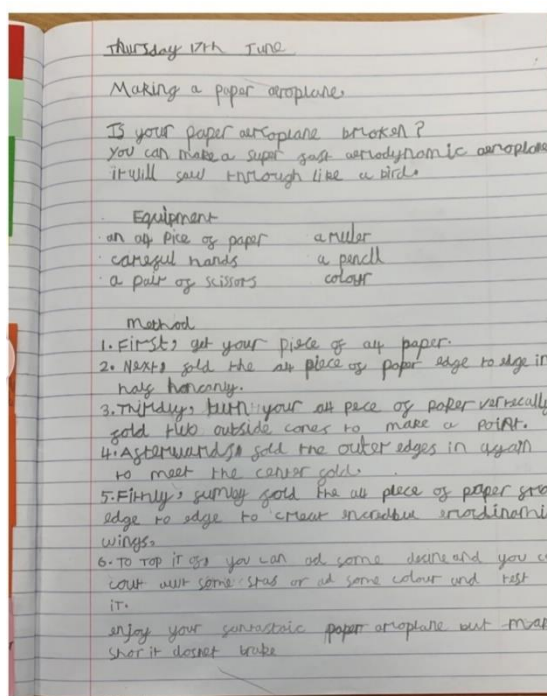 Thursday 17th June
Making a paper aeroplane.
Is your paper aeroplane broken?
You can make a super fast aerodynamic aeroplane
it will sow through like a bird.
Equipment
· an a4 pice of paper a ruler
· careful hands a pencil
· a pair of scissors colour
Method
1. First, get your piece of a4 paper.
2. Next, fold the a4 piece of paper edge to edge in
half
3. Thirdly, turn your a4 pece of paper
fold outside cones to make a point.
4. Afterwards fold the outer edges in again
to meet the center fold.
5. Firmly, fold the a4 piece of paper
edge to edge to creat
wings.
6. To top it of, you can ad some and you
some stas or ad some colour and test
it.
enjoy your aroplane but
it dosnet brake